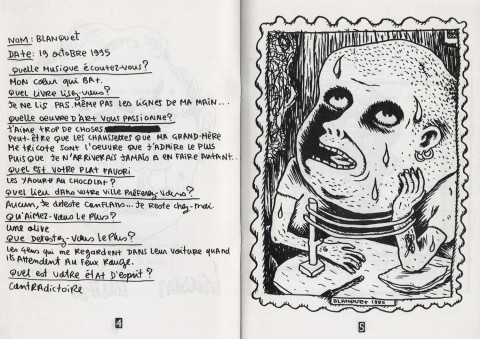 NOM : BLANQUET
DATE: 19 octobre 1995
Quelle Musique écoutez-vous?
Mon cœur qui bat.
Quel Livre Lisez-vous?
Je ne lis pas. Même pas les lignes de ma main...
quelle oeuvre d'art vous passionne?
J'aime trop de choses.
Peut-être que les chaussettes que ma grand-mère
me tricote sont l'oeuvre que j'admire le plus
puisque je n'arriverais jamais à en faire autant...
quel est votre plat favori
Les yaourt au chocolat?
quel lieu dans votre ville préférez-vous?
Aucun, je déteste Conflans... je reste chez-moi.
Qu'aimez-vous le plus?
une olive
Que detestez-vous le plus?
Les gens qui me regardent dans leur voiture quand
ils attendent au feux rouge.
quel est votre état d'esprit?
contradictoire
4
BLANQUET 1995
5